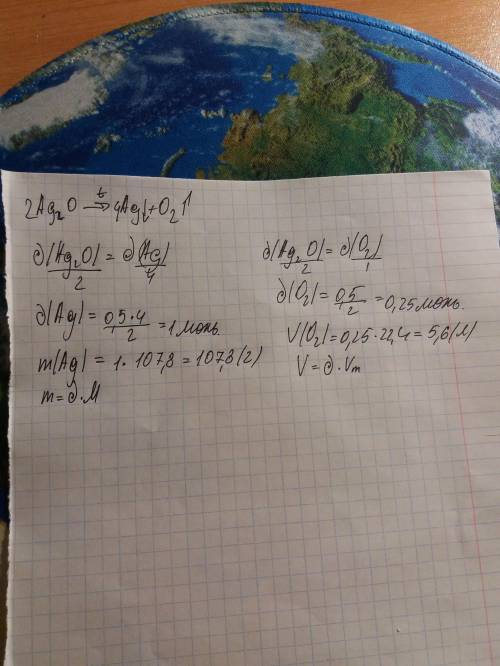 2Ag₂O →ᵗ 4Ag↓+O₂↑
∂(Ag₂O)/2 = ∂(Ag)/4
∂(Ag) = 0,5·4/2 = 1 моль.
m(Ag) = 1·107,8 = 107,8(г)
m=∂·M
∂(Ag₂O)/2 = ∂(O₂)/1
∂(O₂) = 0,5/2 = 0,25 моль.
V(O₂) = 0,25·22,4 = 5,6(л)
V=∂·Vm